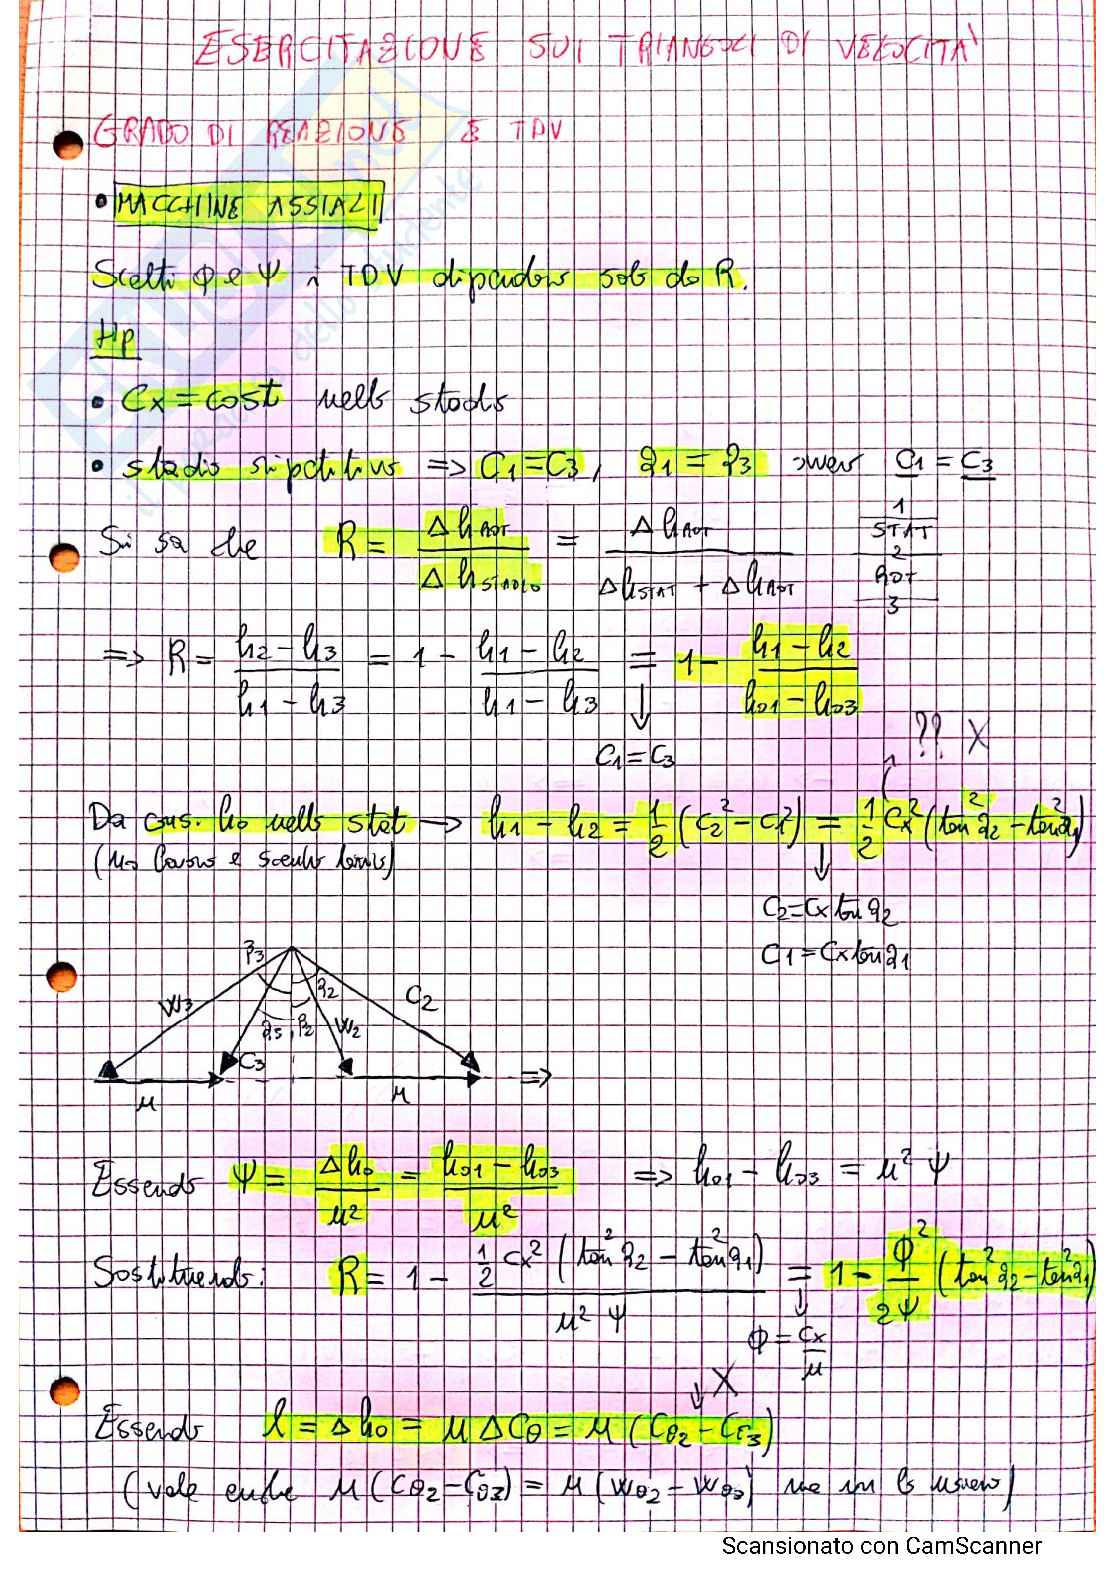 ESERCITAZIONE SUI TRIANGOLI DI VELOCITÀ
GRADO DI REAZIONE E TDV
• MACCHINE ASSIALI
Scelti φ e ψ i TDV dipendono solo da R.
Hp
• Cx = cost nello stadio
• stadio ripetitivo => C1 = C3, α1 = α3 ovvero C1 = C3
Si sa che R = ΔhROT / ΔhSTADIO = ΔhROT / (ΔhSTAT + ΔhROT)
1
STAT
2
ROT
3
=> R = (h2 - h3) / (h1 - h3) = 1 - (h1 - h2) / (h1 - h3) = 1 - (h1 - h2) / (h01 - h03)
C1 = C3
?? X
Da cons. h0 nello stat → h1 - h2 = 1/2 (C2² - C1²) = 1/2 Cx² (tan² α2 - tan² α1)
(no lavoro e scambio termico)
C2 = Cx tan α2
C1 = Cx tan α1
β3
W3
α2
C2
α3
β2
W2
C3
μ
μ
=>
Essendo ψ = Δh0 / μ² = (h01 - h03) / μ² => h01 - h03 = μ² ψ
Sostituendo: R = 1 - 1/2 Cx² (tan² α2 - tan² α1) / μ² ψ = 1 - φ² / 2ψ (tan² α2 - tan² α1)
φ = Cx / μ
X
Essendo l = Δh0 = μ ΔCθ = μ (Cθ2 - Cθ3)
(vale anche μ (Cθ2 - Cθ3) = μ (Wθ2 - Wθ3) ma qui lo usiamo)
Scansionato con CamScanner